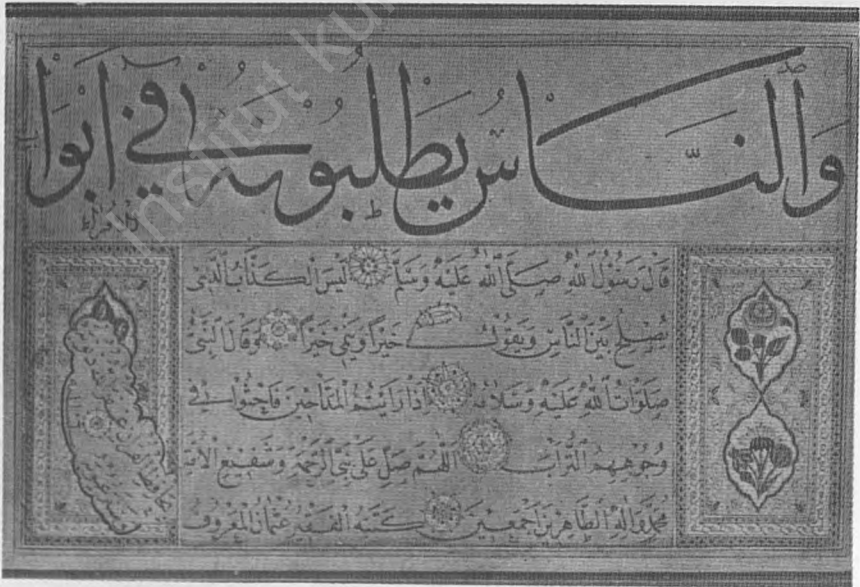 وَالنَّاسُ يَطْلُبُونَهُ فِي اَبْوَا
قَالَ رَسُولُ اللهِ صَلَّى اللهُ عَلَيْهِ وَسَلَّمَ لَيْسَ الْكَذَّابُ الَّذِى
يُصْلِحُ بَيْنَ النَّاسِ وَيَقُولُ خَيْرًا وَيَنْمِى خَيْرًا وَقَالَ النَّبِىُّ
صَلَوَاتُ اللهِ عَلَيْهِ وَسَلَامُهُ اِذَا رَاَيْتُمُ الْمَدَّاحِينَ فَاحْثُوا فِى
وُجُوهِهِمُ التُّرَابَ اَللّٰهُمَّ صَلِّ عَلَى نَبِىِّ الرَّحْمَةِ وَشَفِيعِ الْاُمَّةِ
مُحَمَّدٍ وَآلِهِ الطَّاهِرِينَ اَجْمَعِينَ كَتَبَهُ الْفَقِيرُ عُثْمَانُ الْمَعْرُوفُ
institut kur